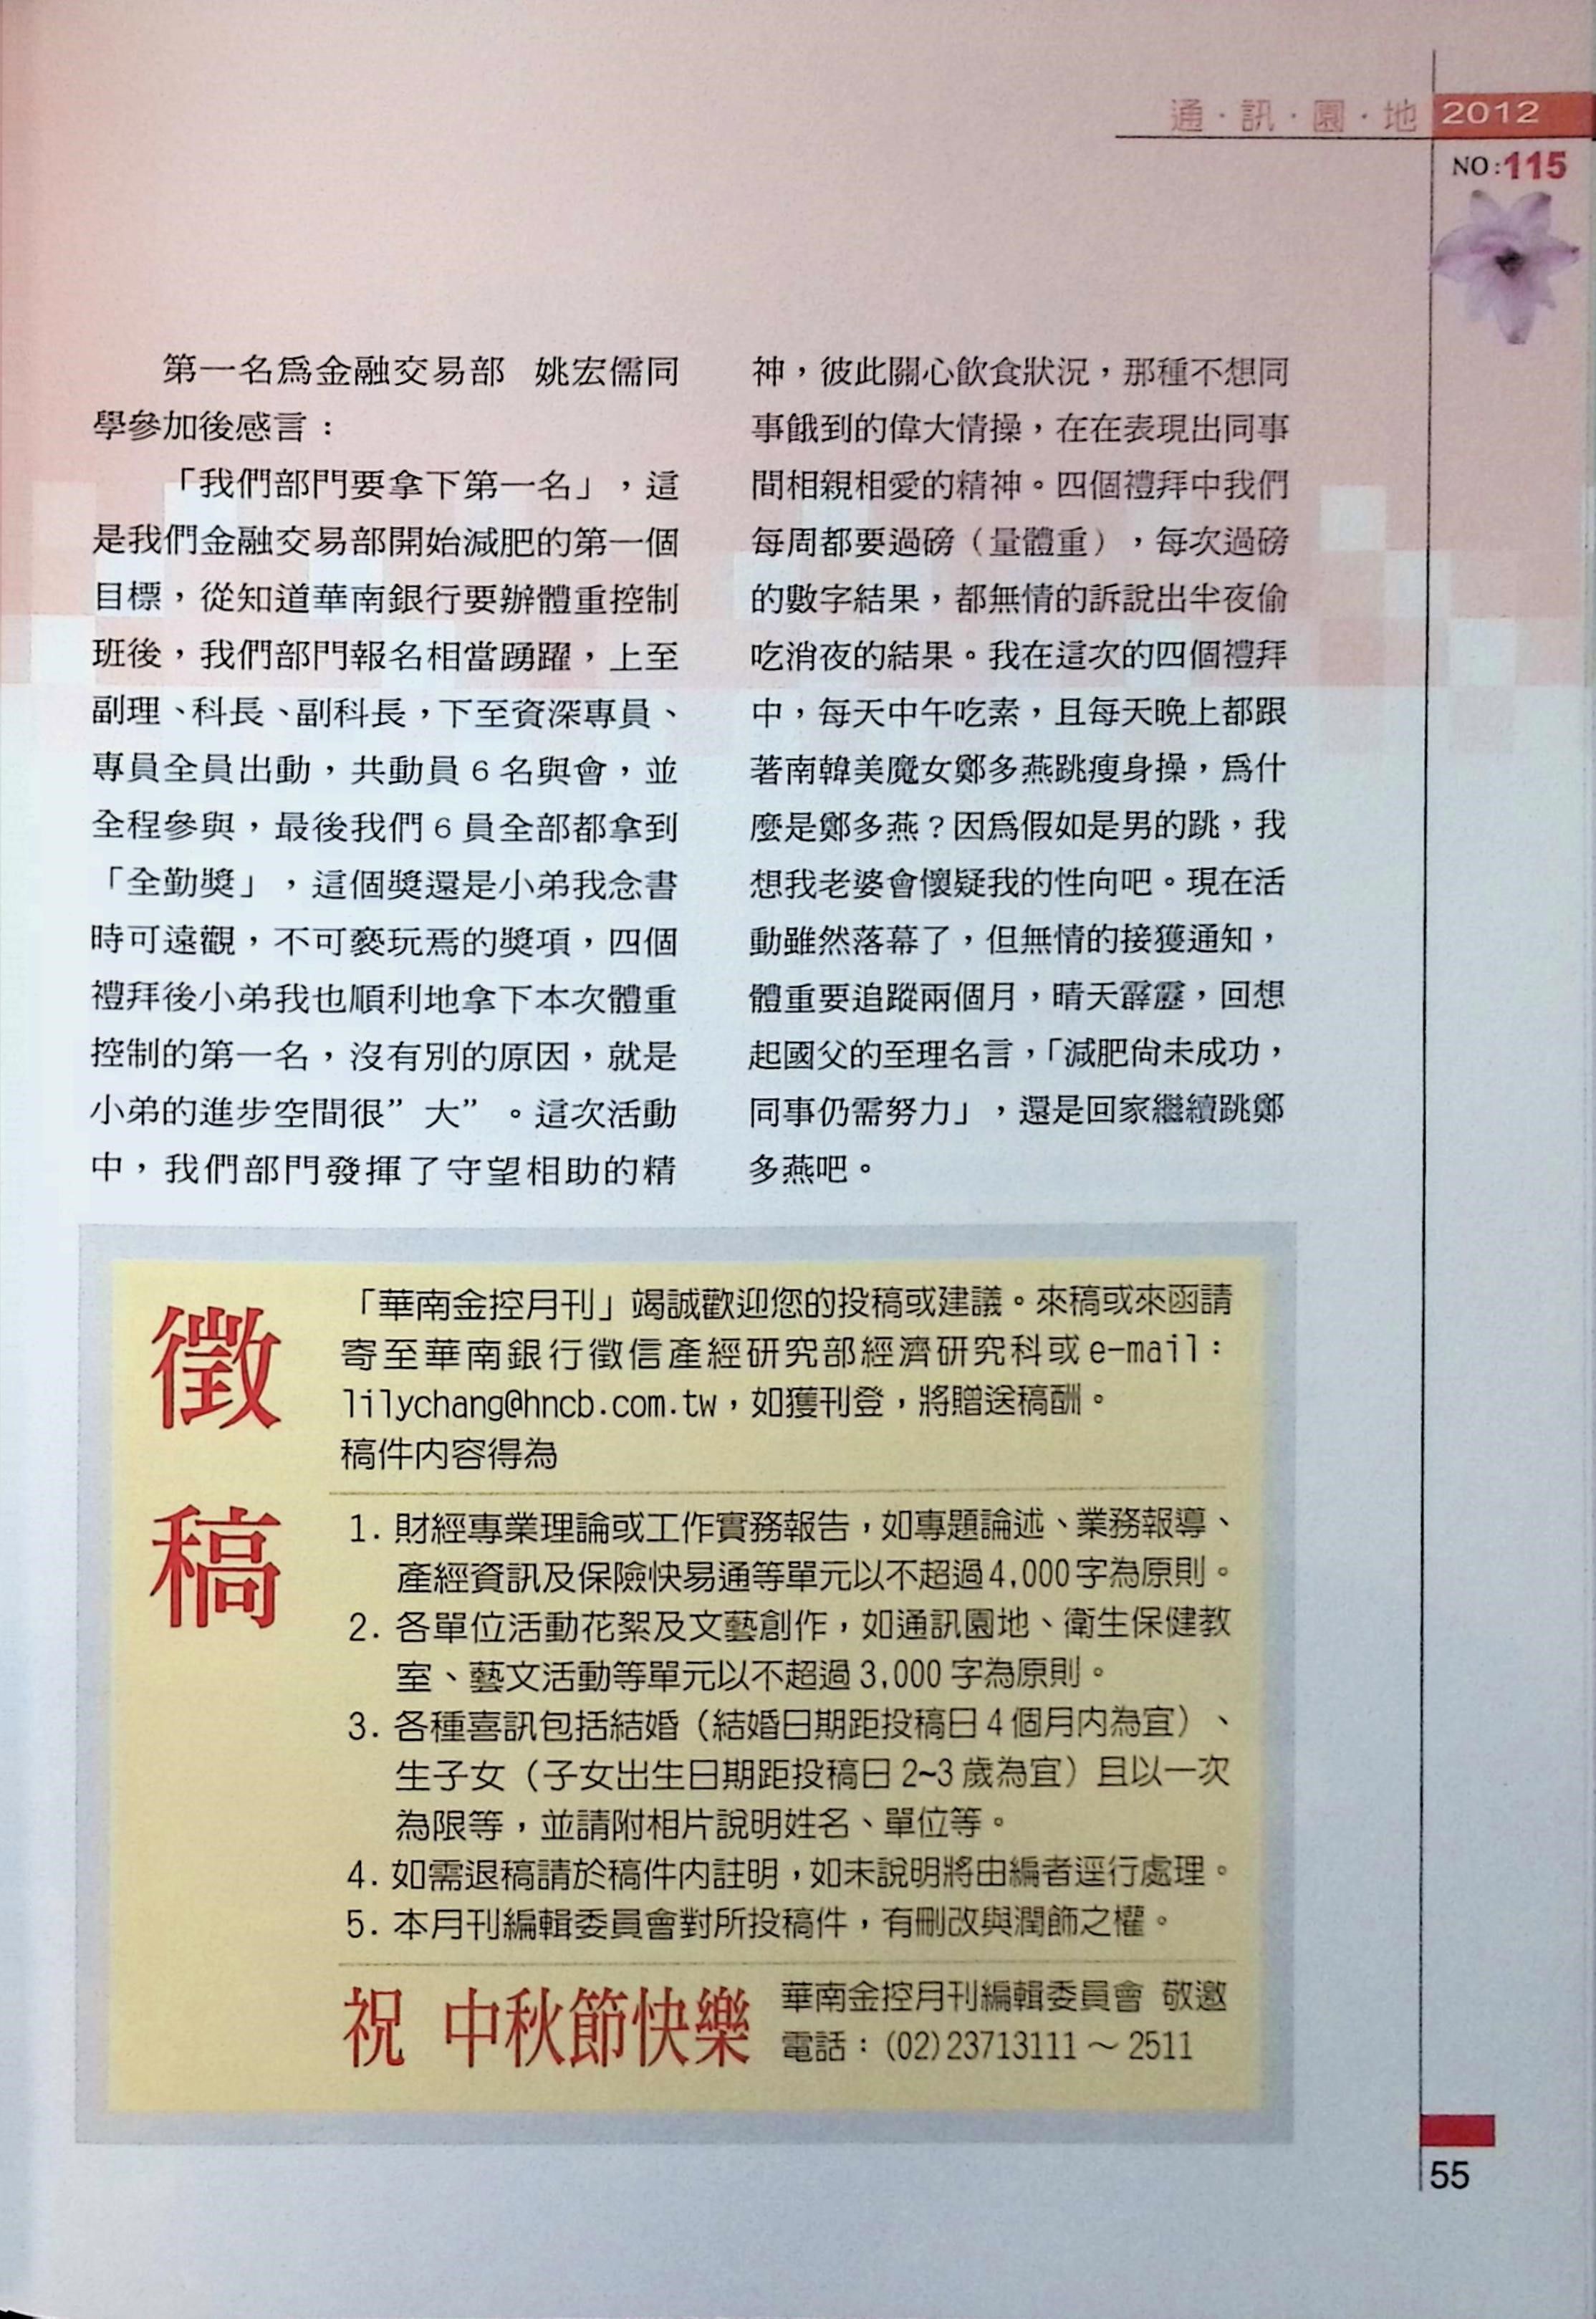 通·訊·園·地 2012
NO:115
第一名爲金融交易部 姚宏儒同
學參加後感言：
「我們部門要拿下第一名」，這
是我們金融交易部開始減肥的第一個
目標，從知道華南銀行要辦體重控制
班後，我們部門報名相當踴躍，上至
副理、科長、副科長，下至資深專員、
專員全員出動，共動員6名與會，並
全程參與，最後我們6員全部都拿到
「全勤獎」，這個獎還是小弟我念書
時可遠觀，不可褻玩焉的獎項，四個
禮拜後小弟我也順利地拿下本次體重
控制的第一名，沒有別的原因，就是
小弟的進步空間很”大”。這次活動
中，我們部門發揮了守望相助的精
神，彼此關心飲食狀況，那種不想同
事餓到的偉大情操，在在表現出同事
間相親相愛的精神。四個禮拜中我們
每周都要過磅（量體重），每次過磅
的數字結果，都無情的訴說出半夜偷
吃消夜的結果。我在這次的四個禮拜
中，每天中午吃素，且每天晚上都跟
著南韓美魔女鄭多燕跳瘦身操，爲什
麼是鄭多燕？因爲假如是男的跳，我
想我老婆會懷疑我的性向吧。現在活
動雖然落幕了，但無情的接獲通知，
體重要追蹤兩個月，晴天霹靂，回想
起國父的至理名言，「減肥尚未成功，
同事仍需努力」，還是回家繼續跳鄭
多燕吧。
徵稿
「華南金控月刊」竭誠歡迎您的投稿或建議。來稿或來函請
寄至華南銀行徵信產經研究部經濟研究科或e-mail：
lilychang@hncb.com.tw，如獲刊登，將贈送稿酬。
稿件内容得為
1. 財經專業理論或工作實務報告，如專題論述、業務報導、
產經資訊及保險快易通等單元以不超過4,000字為原則。
2. 各單位活動花絮及文藝創作，如通訊園地、衛生保健教
室、藝文活動等單元以不超過3,000字為原則。
3. 各種喜訊包括結婚（結婚日期距投稿日4個月内為宜）、
生子女（子女出生日期距投稿日2~3歲為宜）且以一次
為限等，並請附相片說明姓名、單位等。
4. 如需退稿請於稿件内註明，如未說明將由編者逕行處理。
5. 本月刊編輯委員會對所投稿件，有刪改與潤飾之權。
祝 中秋節快樂
華南金控月刊編輯委員會 敬邀
電話：(02)23713111～2511
55